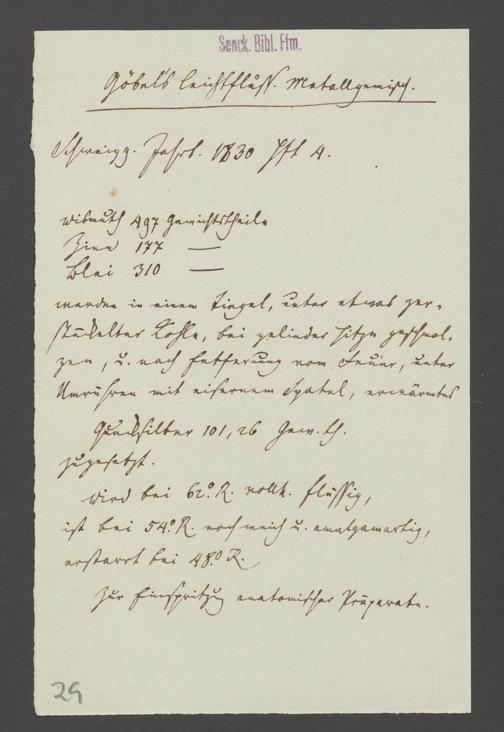 Senck. Bibl. Ffm.
Göbel's leichtflüss. Metallgemisch.
Schweigg. Jahrb. 1830 Hft 4.
Wismuth 497 Gewichtstheile
Zinn 177 —
Blei 310 —
werden in einem Tiegel, unter etwas zer-
stückelter Kohle, bei gelinder Hitze geschmol-
zen, u. nach Entfernung vom Feuer, unter
Umrühren mit eisernem Spatel, erwärmtes
Quecksilber 101,26 Gew. th.
zugesetzt.
Wird bei 62.° R. vollk. flüssig,
ist bei 54.° R. noch weich u. amalgamartig,
erstarrt bei 48.° R.
Zur Einspritzug anatomischer Präparate.
29